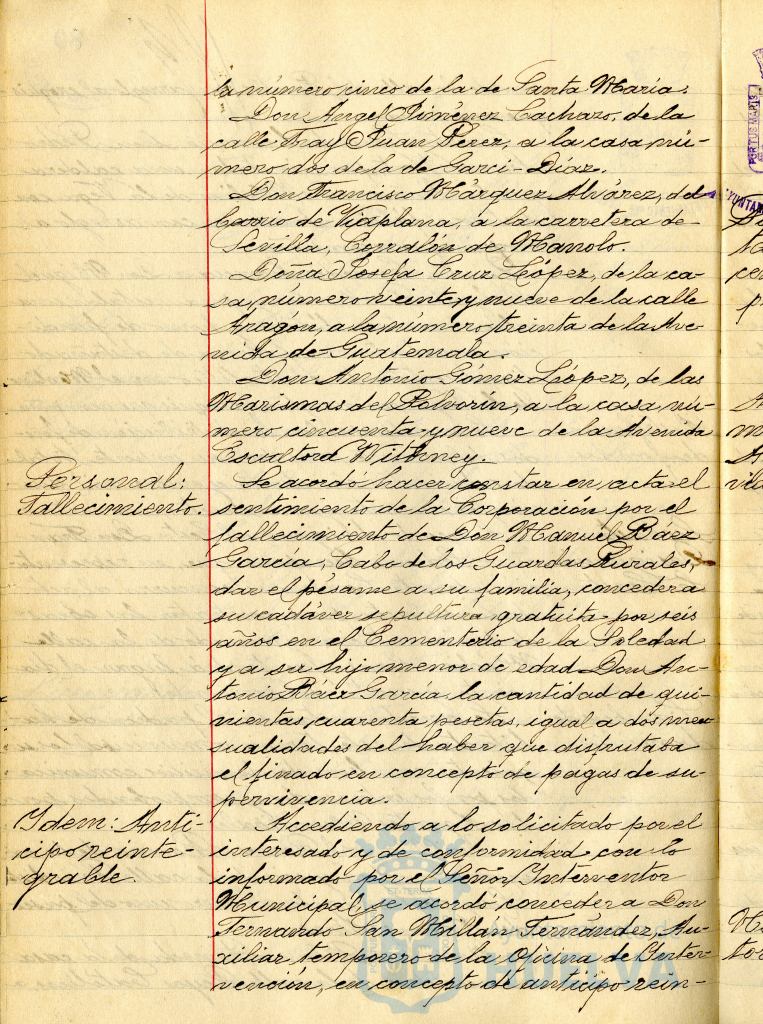 la número cinco de la de Santa María.
Don Angel Jiménez Cachazo, de la
calle Fray Juan Pérez, a la casa nú-
mero dos de la de Garci-Díaz.
Don Francisco Márquez Alvárez, del
barrio de Viaplana, a la carretera de
Sevilla, Corralón de Manolo.
Doña Josefa Cruz López, de la ca-
sa número veinte y nueve de la calle
Aragón, a la número treinta de la Ave
nida de Guatemala.
Don Antonio Gómez López, de las
Marismas del Polvorín, a la casa nú-
mero cincuenta y nueve de la Avenida
Escultora Withney.
Personal:
Fallecimiento.
Se acordó hacer constar en acta el
sentimiento de la Corporación por el
fallecimiento de Don Manuel Báez
García, Cabo de los Guardas Rurales,
dar el pésame a su familia, conceder a
su cadáver sepultura gratuita por seis
años en el Cementerio de la Soledad
y a su hijo menor de edad Don An-
tonio Báez García la cantidad de qui-
nientas cuarenta pesetas, igual a dos men
sualidades del haber que disfrutaba
el finado en concepto de pagas de su-
pervivencia.
Idem: Anti-
cipo reinte-
grable.
Accediendo a lo solicitado por el
interesado y de conformidad con lo
informado por el Señor Interventor
Municipal, se acordó conceder a Don
Fernando San Millán Fernández, Au-
xiliar temporero de la Oficina de Inter-
vención, en concepto de anticipo rein-
HUELVA